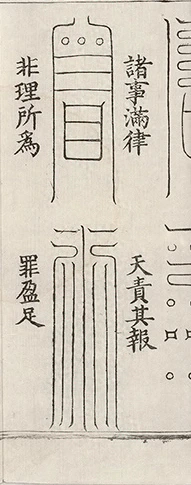 諸事滿律
天責其報
非理所為
罪盈足